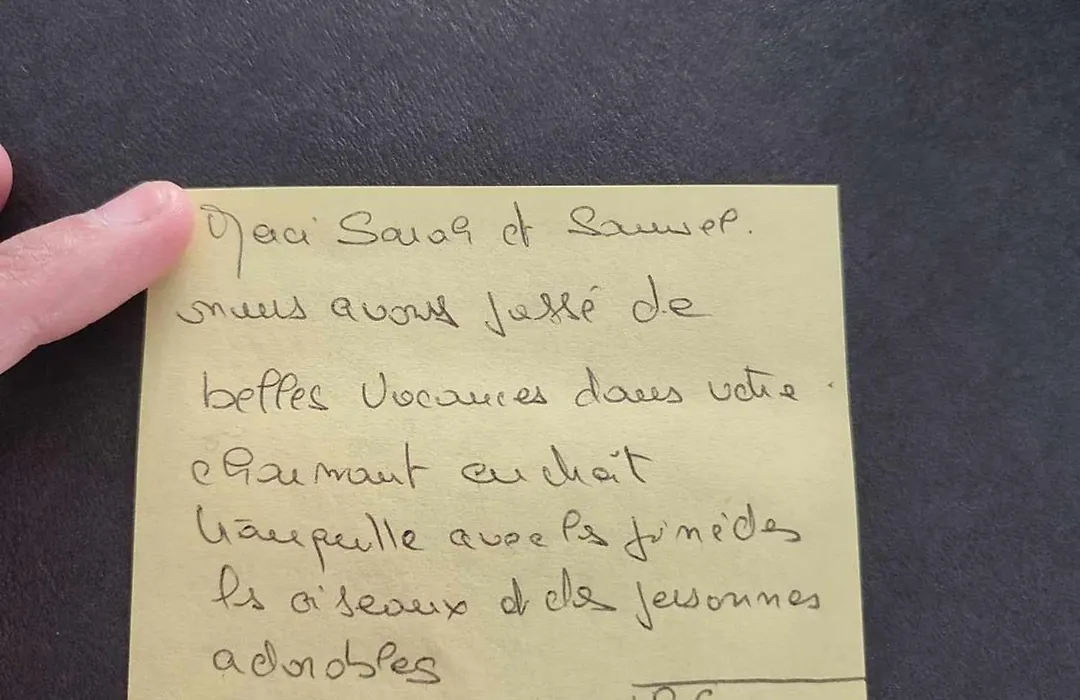 Merci Sarah et Samuel.
nous avons passé de
belles vacances dans votre
charmant endroit
tranquille avec les pinèdes
les oiseaux et des personnes
adorables